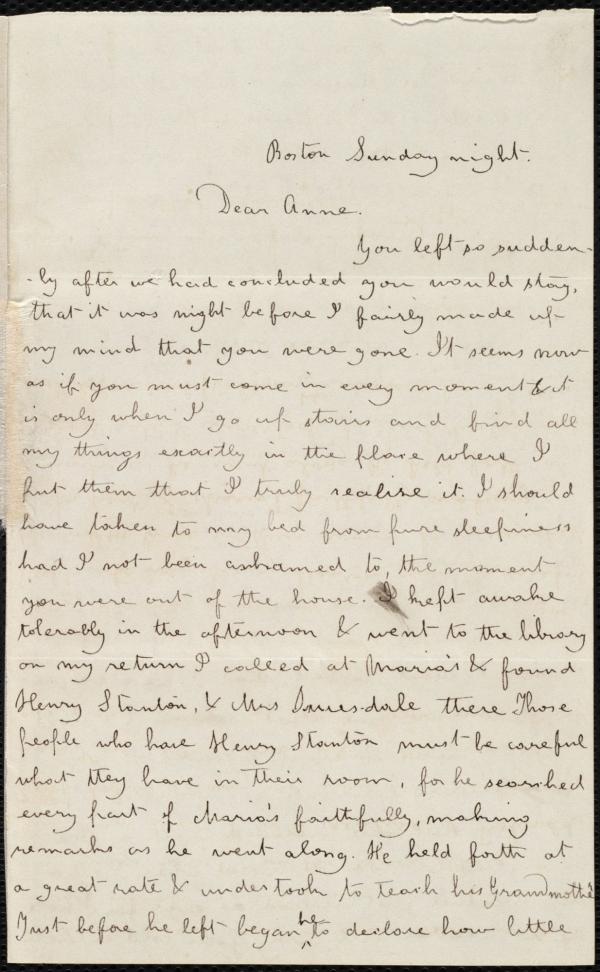 Boston Sunday night.
Dear Anne.
You left so sudden-
-ly after we had concluded you would stay,
that it was night before I fairly made up
my mind that you were gone. It seems now
as if you must come in every moment & it
is only when I go up stairs and find all
my things exactly in the place where I
put them that I truly realise it. I should
have taken to my bed from pure sleepiness
had I not been ashamed to, the moment
you were out of the house. I kept awake
tolerably in the afternoon & went to the library
on my return I called at Maria's & found
Henry Stanton, & Mrs there Those
people who have Henry Stanton must be careful
what they have in their room, for he searched
every part of Maria's faithfully, making
remarks as he went along. He held forth at
a great rate & undertook to teach his Grandmother
Just before he left began he to declare how little